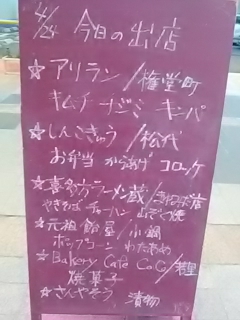 4/24 今日の出店
☆アリラン/権堂町
キムチ チヂミ キンパ
☆しんこきゅう/松代
お弁当 からあげ コロッケ
☆喜多方ラーメン蔵/店
やきそば チャーハン
☆元祖飴屋/小鍋
ポップコーン わたあめ
☆Bakery Cafe CoCo/
焼菓子
☆さんやそう 漬物